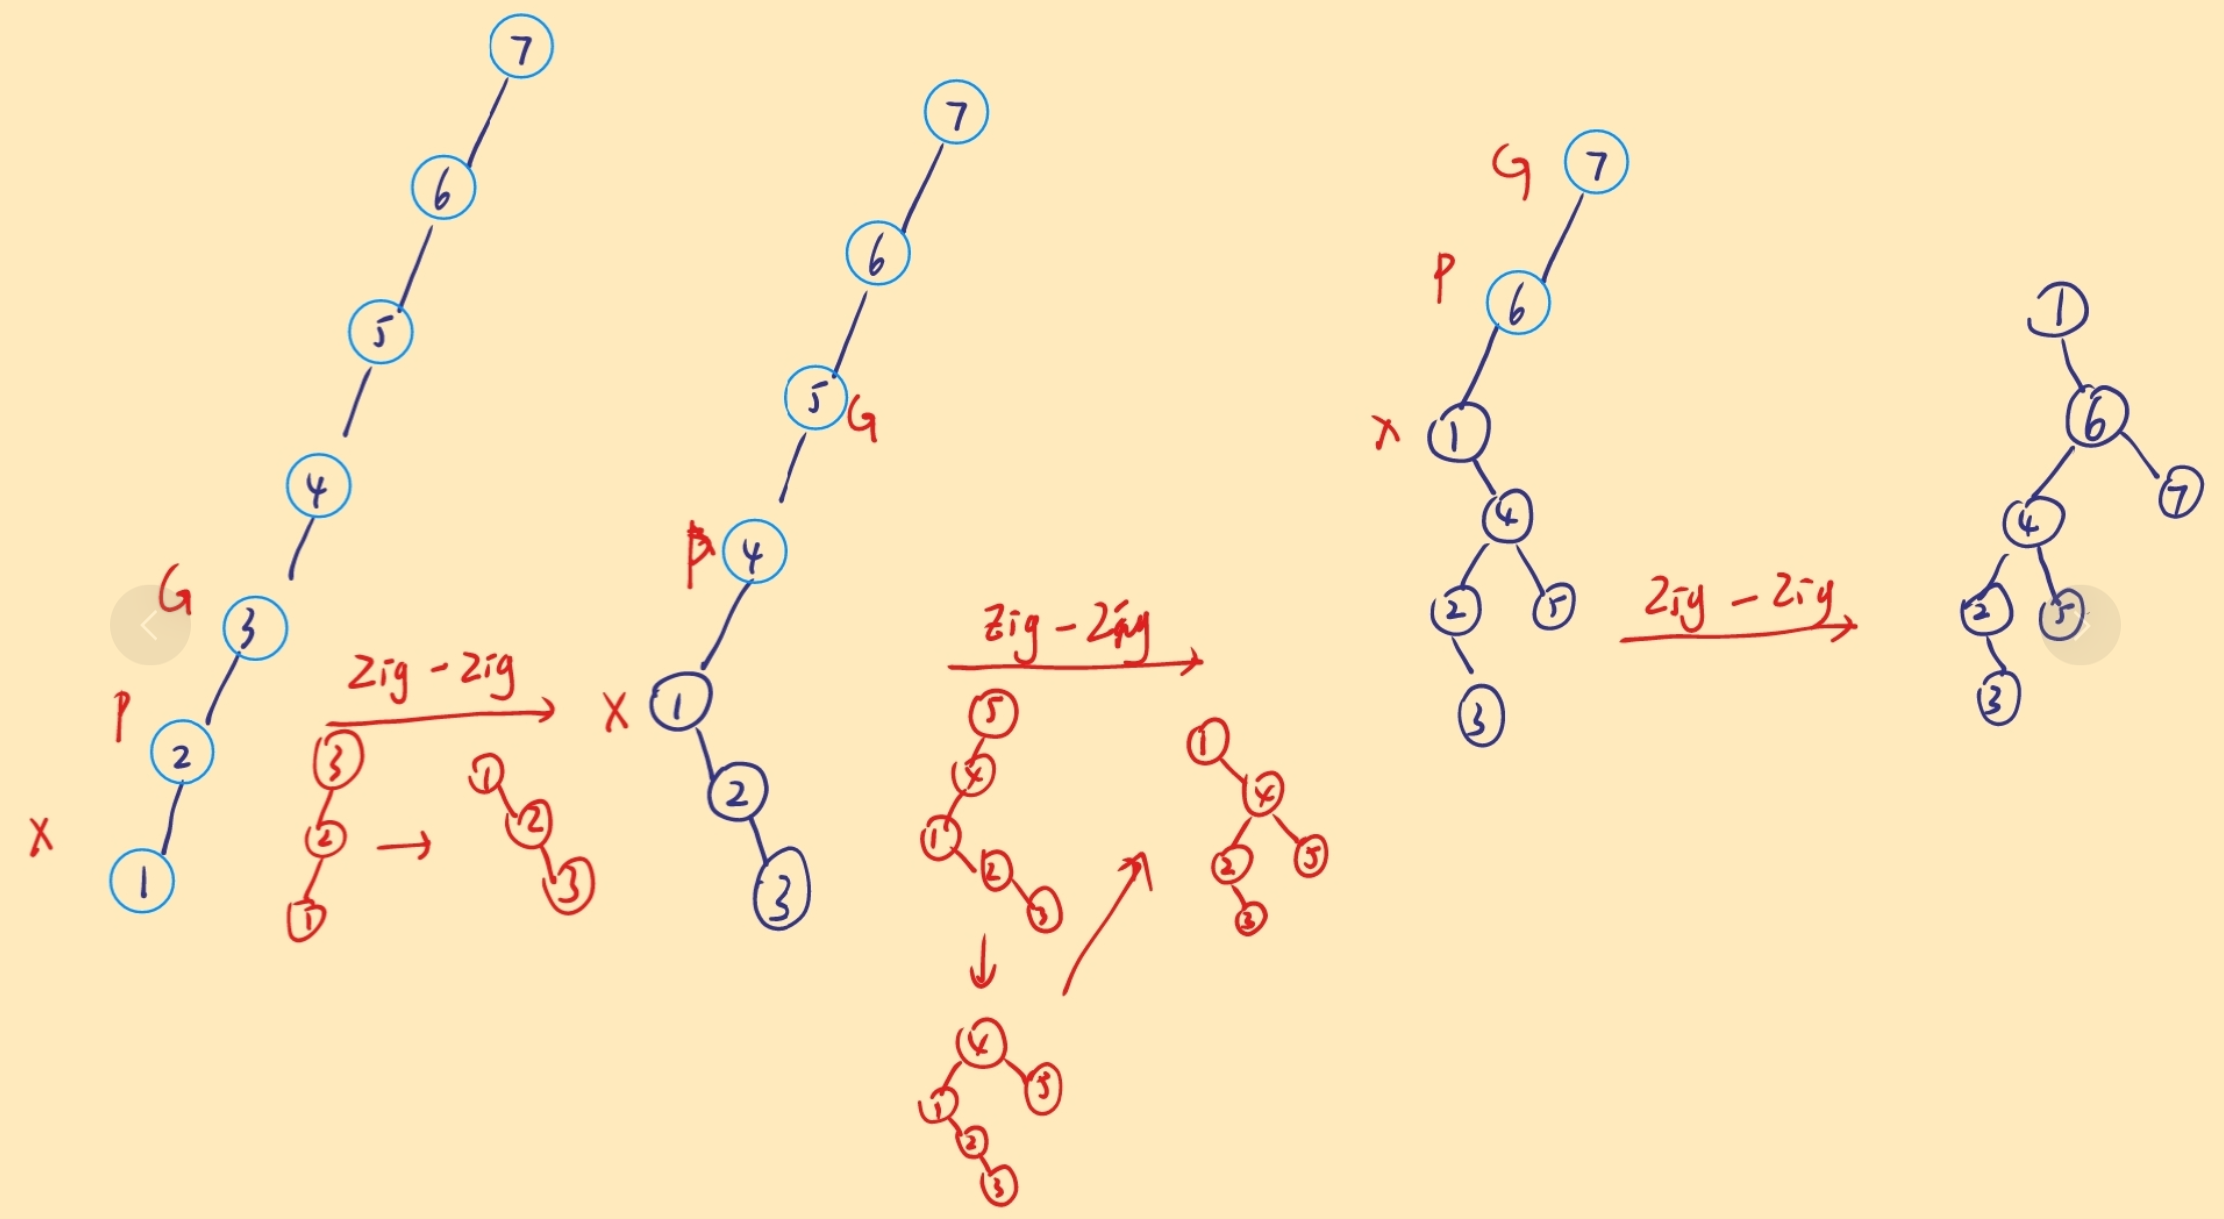 7
6
5
4
G
3
P
2
X
1
Zig-Zig
3
2
1
1
2
3
7
6
5
G
P
4
X
1
2
3
Zig-Zig
5
4
1
2
3
4
1
5
2
3
1
4
2
5
3
G
7
P
6
X
1
4
2
5
3
Zig-Zig
1
6
7
4
2
5
3